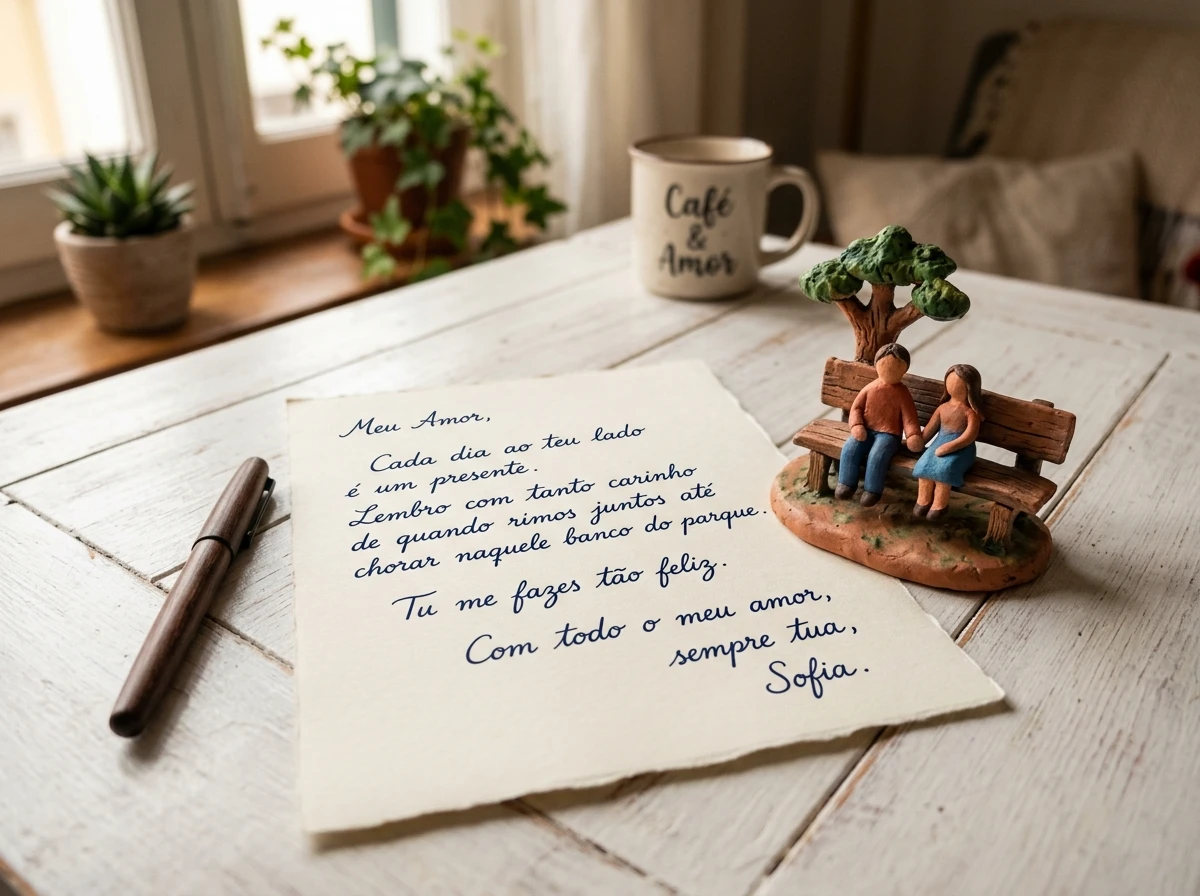 Café
&
Amor
Meu Amor,
Cada dia ao teu lado
é um presente.
Lembro com tanto carinho
de quando rimos juntos até
chorar naquele banco do parque.
Tu me fazes tão feliz.
Com todo o meu amor,
sempre tua,
Sofia.